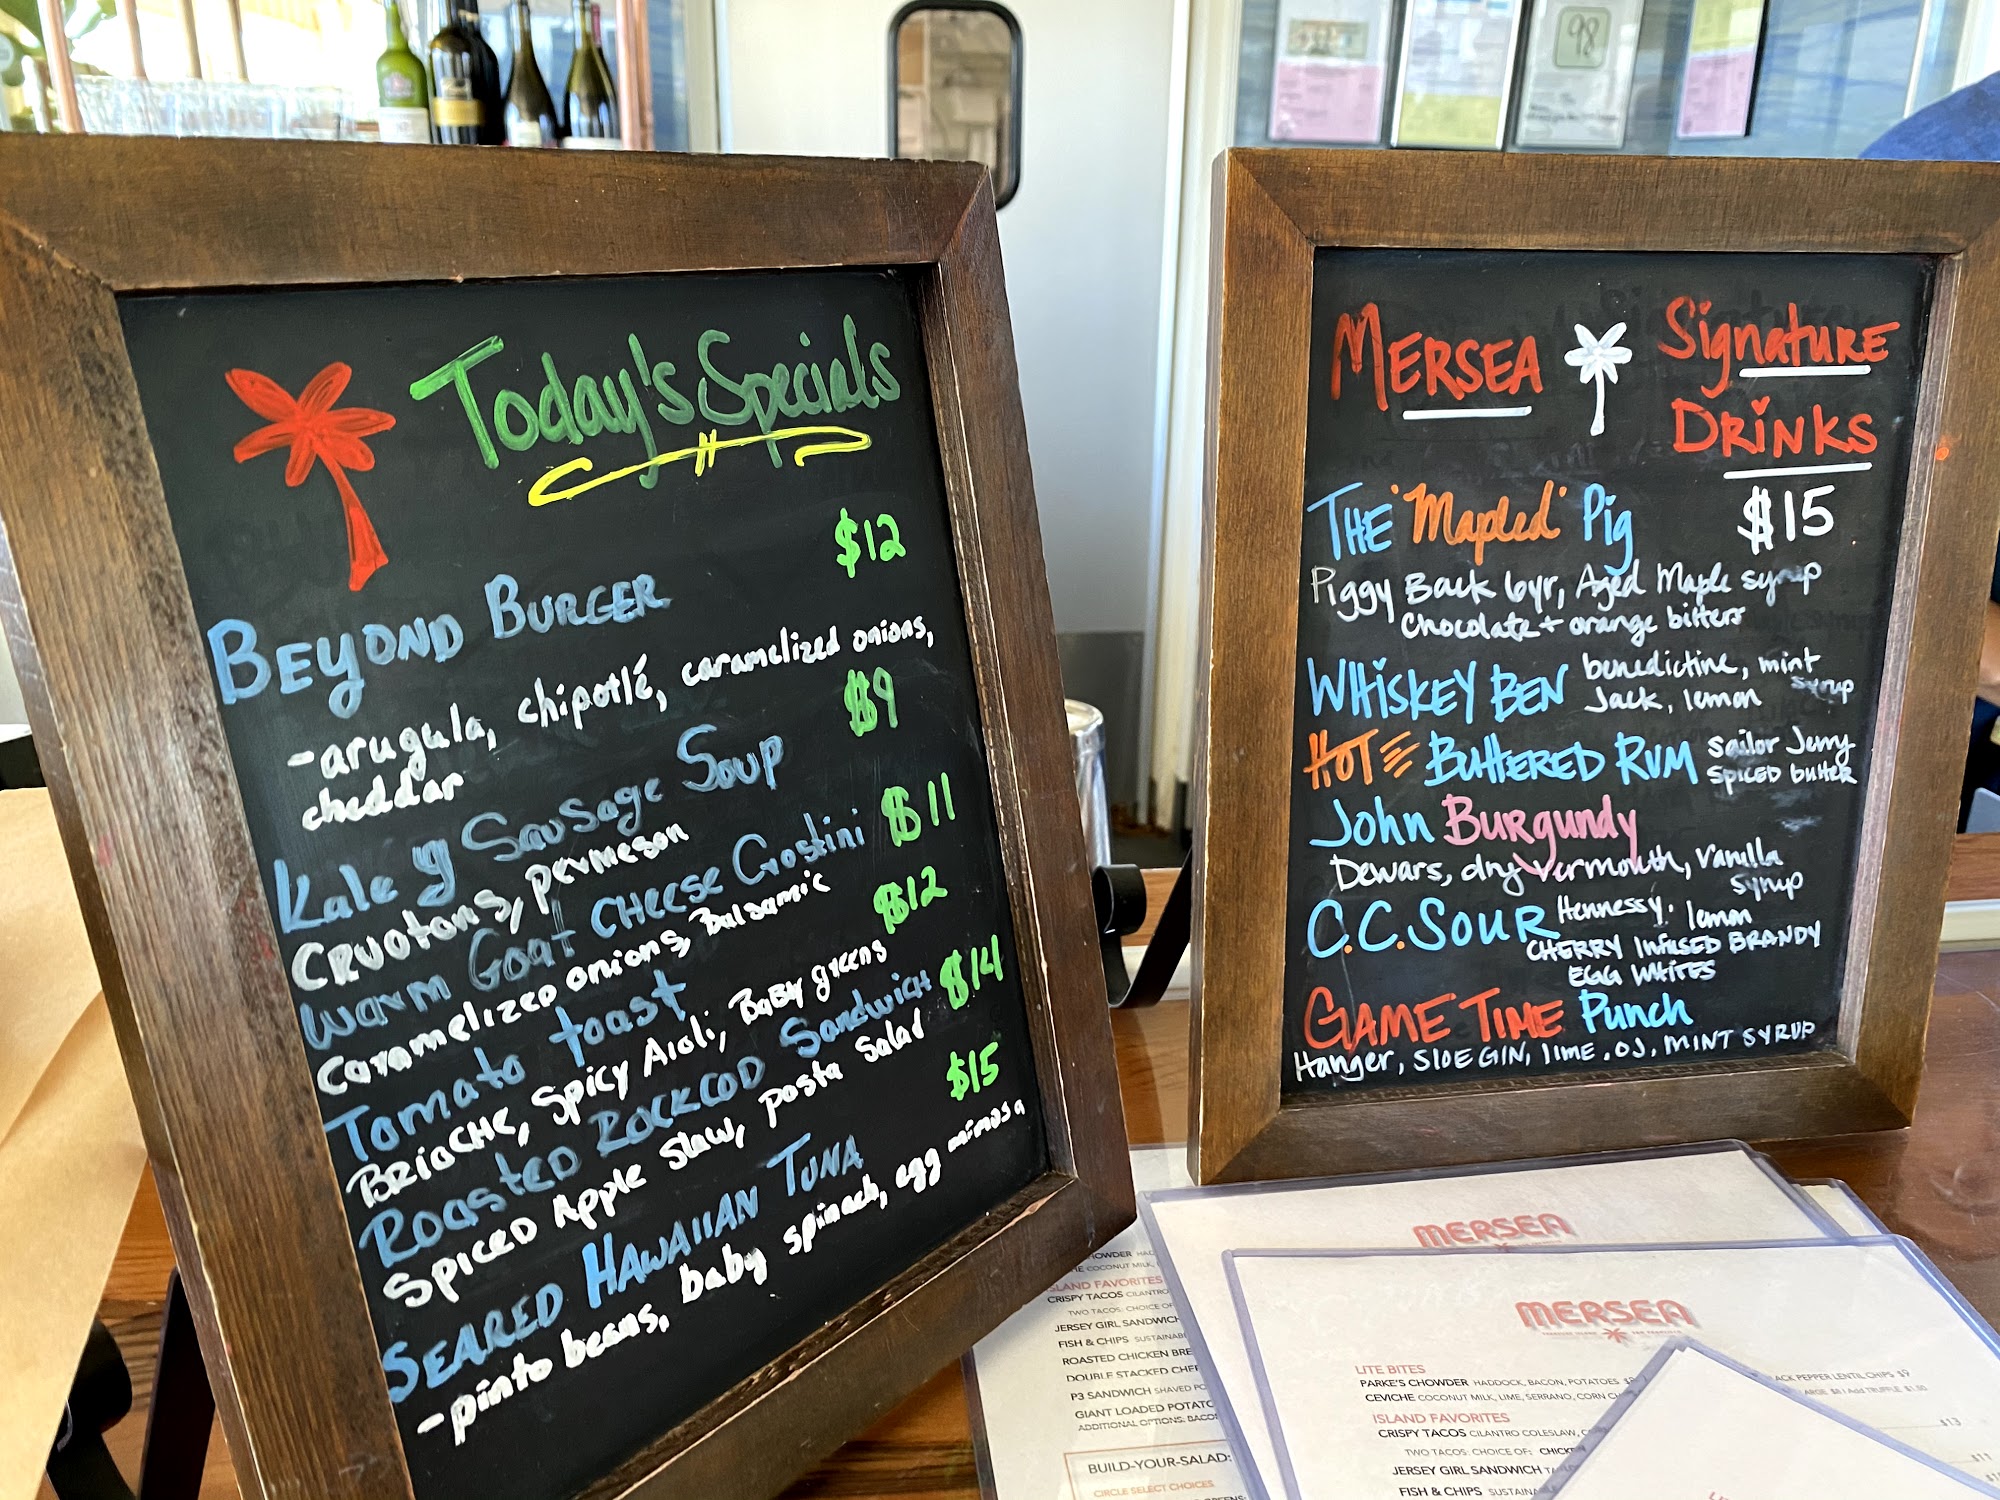 Today's Specials
$12
BEYOND BURGER
-arugula, chipotlé, caramelized onions,
cheddar
$9
Kale y Sausage Soup
Cruotons, permeson
$11
Warm Goat CHeese Crostini
Caramelized onions, Balsamic
$12
Tomato toast
BRIOCHE, Spicy Aioli, BaBy greens
$14
Roasted ROCKCOD Sandwich
Spiced Apple Slaw, pasta Salad
$15
SEARED HAWAIIAN TUNA
-pinto beans, baby spinach, egg mimosa
MERSEA
Signature
DRINKS
THE 'Mapled' Pig $15
Piggy Back 6yr, Aged Maple syrup
Chocolate + orange bitters
WHISKEY BEN benedictine, mint
syrup
Jack, lemon
HOT BUTTERED RUM Sailor Jerry
SPICED butter
John Burgundy
Dewars, dry Vermouth, Vanilla
syrup
C.C. SOUR Hennessy, lemon
CHERRY INFUSED BRANDY
EGG WHITES
GAME TIME Punch
Hanger, SLOE GIN, lime, OJ, MINT SYRUP
98
MERSEA
MERSEA
TREASURE ISLAND SAN FRANCISCO
LITE BITES
PARKE'S CHOWDER HADDOCK, BACON, POTATOES
CEVICHE COCONUT MILK, LIME, SERRANO, CORN
ISLAND FAVORITES
CRISPY TACOS CILANTRO COLESLAW,
TWO TACOS: CHOICE OF: CHICKEN
JERSEY GIRL SANDWICH
FISH & CHIPS
PEPPER LENTIL CHIPS $9
TRUFFLE $1.50
$13
COCONUT MILK,
ISLAND FAVORITES
CRISPY TACOS CILANTRO
TWO TACOS: CHOICE OF
JERSEY GIRL SANDWICH
FISH & CHIPS
ROASTED CHICKEN
DOUBLE STACKED
P3 SANDWICH SHAVED
GIANT LOADED
ADDITIONAL OPTIONS:
BUILD-YOUR-SALAD:
CIRCLE SELECT CHOICES